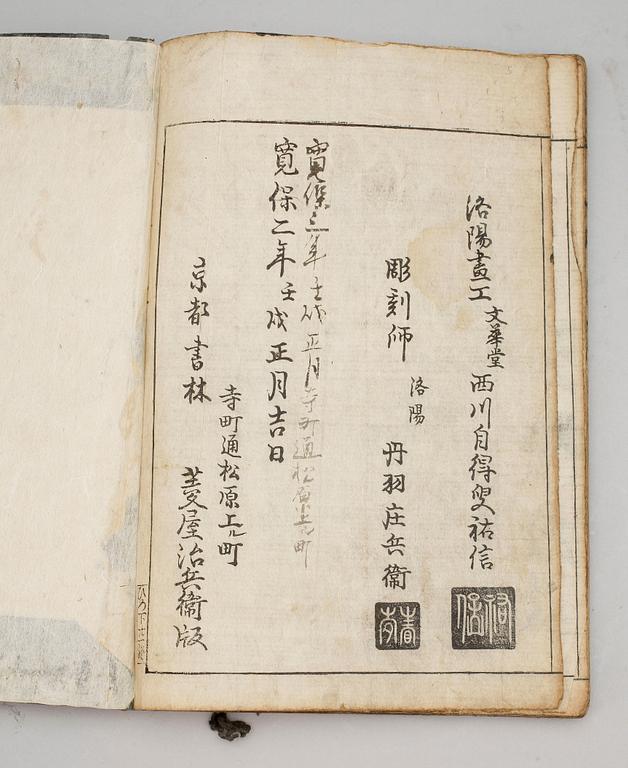 洛陽畫工 文華堂 西川自得叟祐信
祐信
彫刻師 洛陽 丹羽庄兵衞
寛保二年壬戌正月寺町通松原上ル町
寛保二年壬戌正月吉日
寺町通松原上ル町
京都書林 菱屋治兵衞版
ひろ下